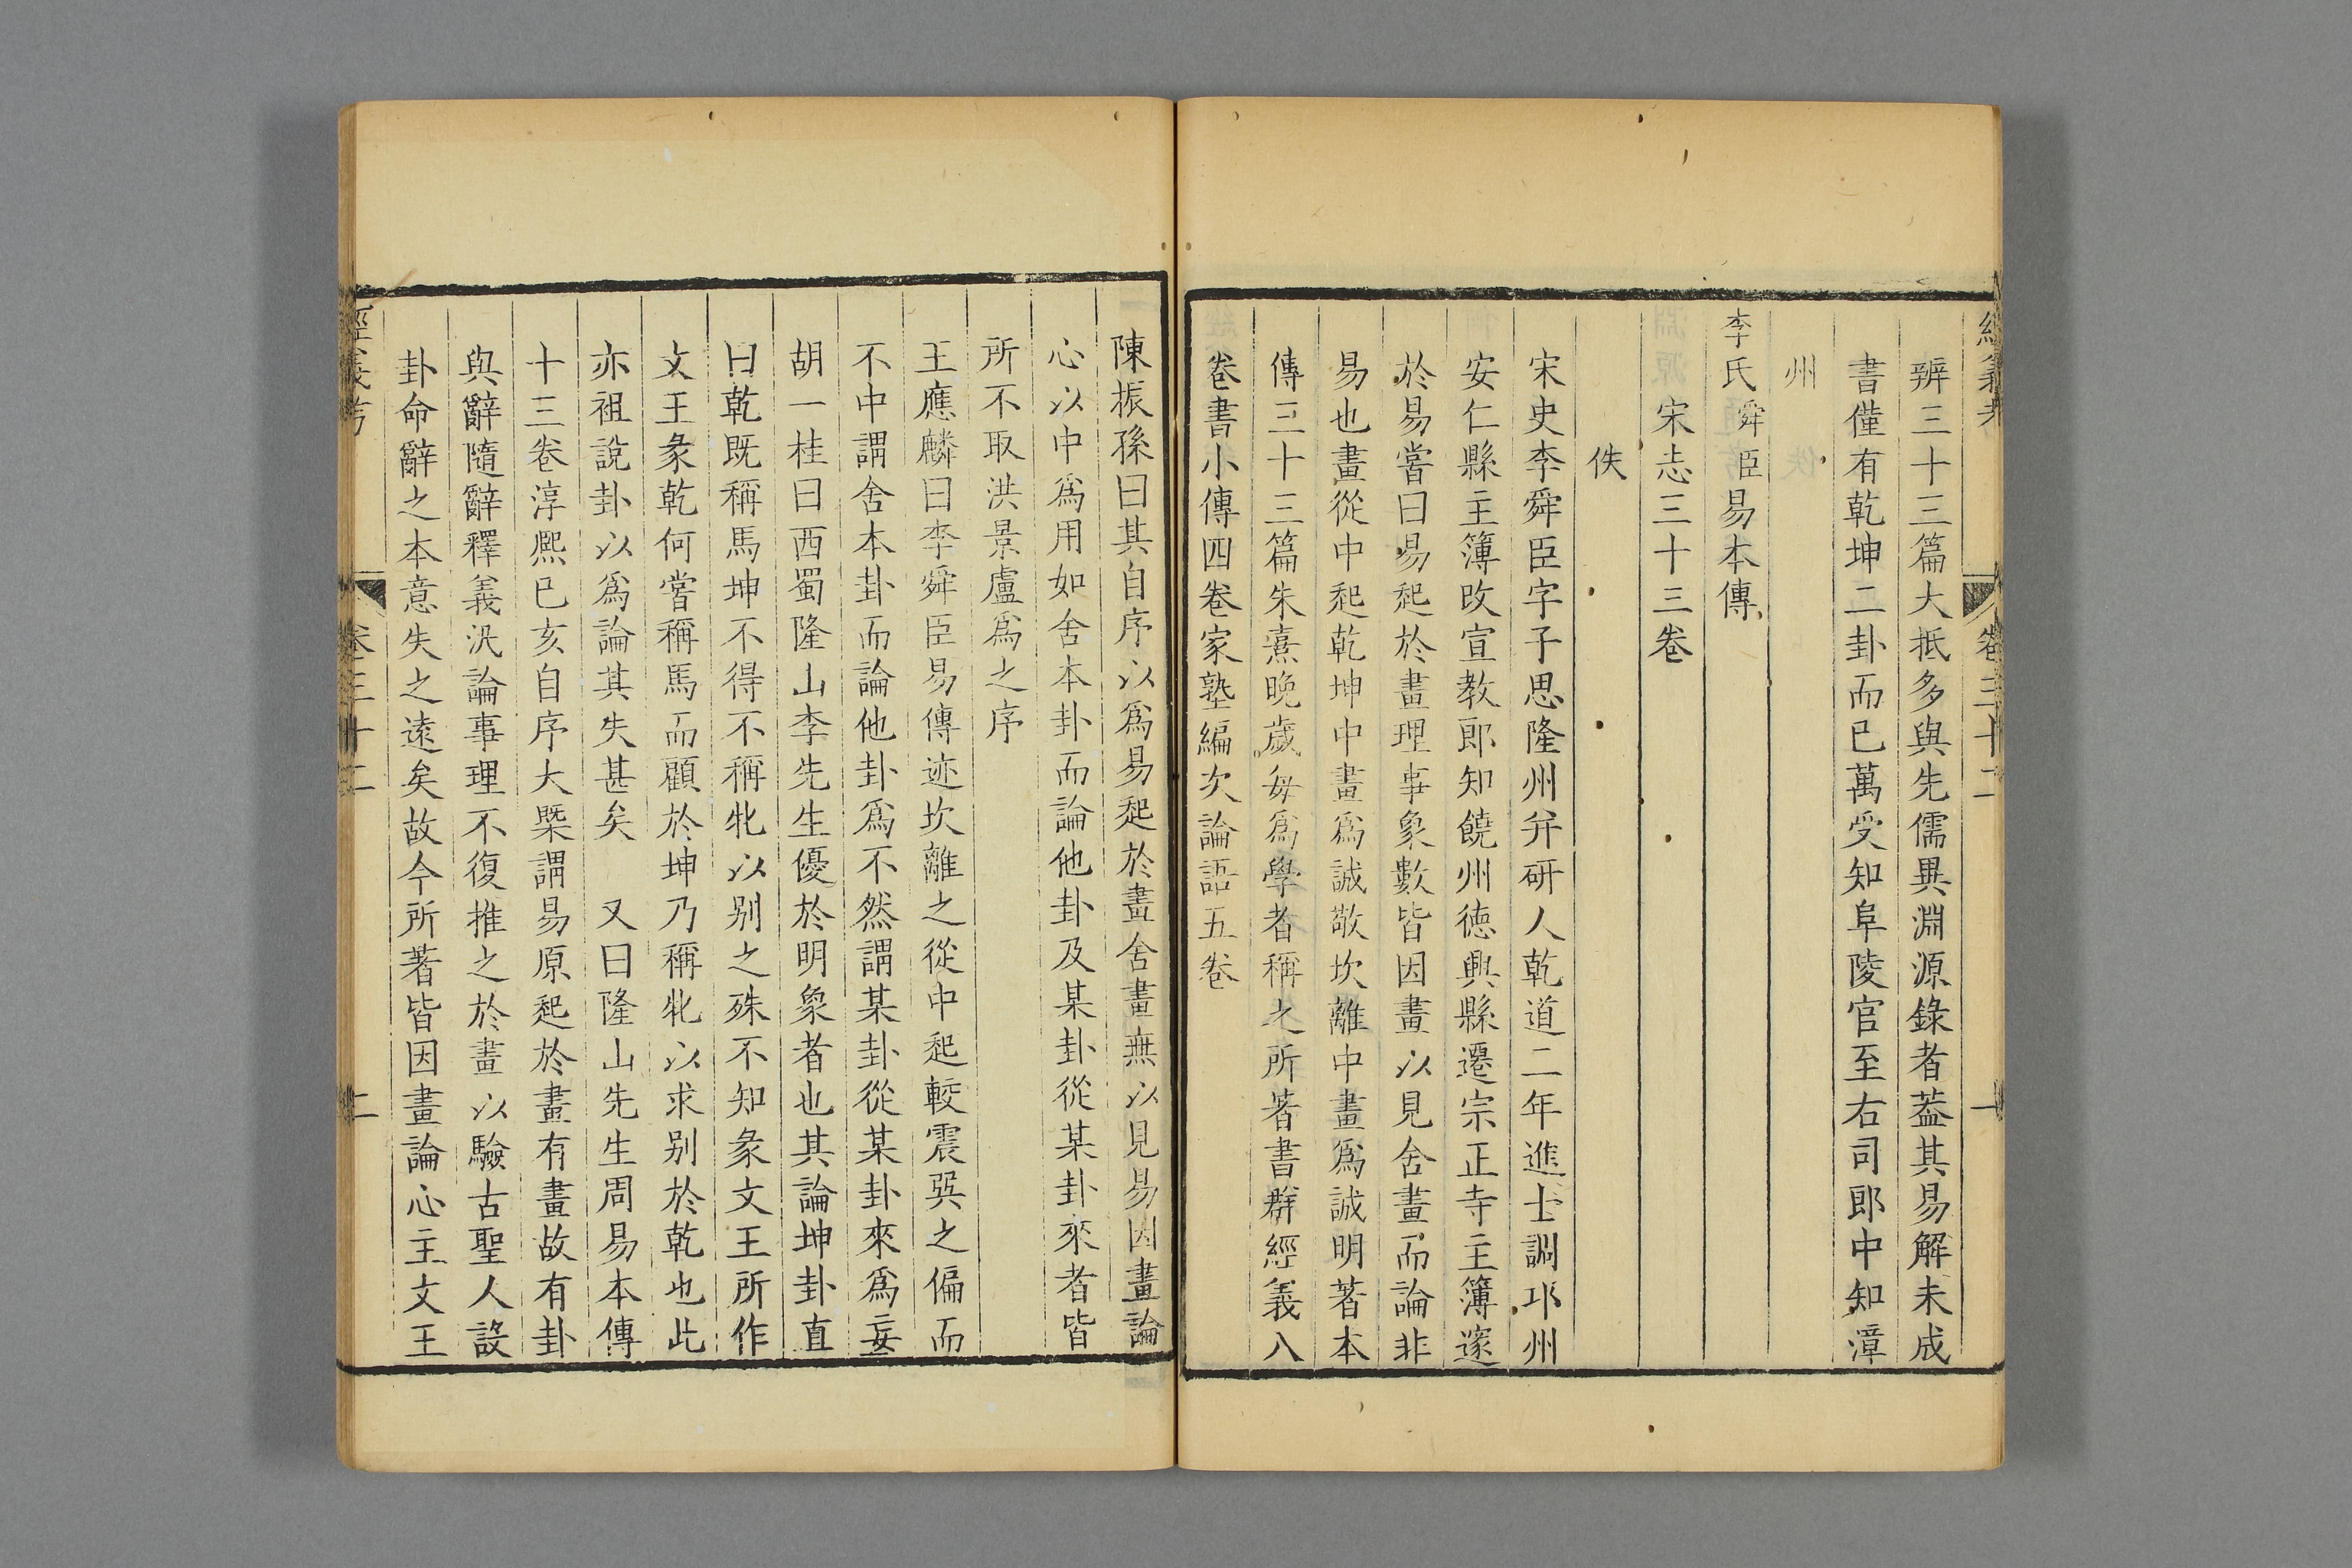 經義考 卷三十二 一
辨三十三篇大抵多與先儒異淵源錄者葢其易解未成
書僅有乾坤二卦而已萬受知阜陵官至右司郎中知漳
州 佚
李氏舜臣易本傳
宋志三十三卷
佚
宋史李舜臣字子思隆州井研人乾道二年進士調邛州
安仁縣主簿改宣教郎知饒州德興縣遷宗正寺主簿邃
於易嘗曰易起於畫理事象數皆因畫以見舍畫而論非
易也畫從中起乾坤中畫爲誠敬坎離中畫爲誠明著本
傳三十三篇朱熹晚歲每爲學者稱之所著書群經義八
卷書小傳四卷家塾編次論語五卷
陳振孫曰其自序以爲易起於畫舍畫無以見易因畫論
心以中爲用如舍本卦而論他卦及某卦從某卦來者皆
所不取洪景盧爲之序
王應麟曰李舜臣易傳迹坎離之從中起較震巽之偏而
不中謂舍本卦而論他卦爲不然謂某卦從某卦來爲妄
胡一桂曰西蜀隆山李先生優於明象者也其論坤卦直
曰乾既稱馬坤不得不稱牝以别之殊不知彖文王所作
文王彖乾何嘗稱馬而顧於坤乃稱牝以求别於乾也此
亦祖說卦以爲論其失甚矣 又曰隆山先生周易本傳
十三卷淳熙已亥自序大槩謂易原起於畫有畫故有卦
與辭隨辭釋義汎論事理不復推之於畫以驗古聖人設
卦命辭之本意失之遠矣故今所著皆因畫論心主文王
經義考 卷三十二 二